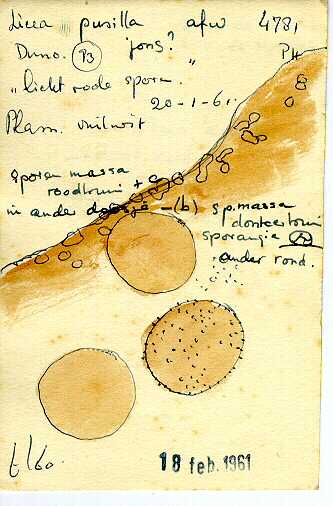 Licea pusilla afw 4781
Duno. P3 jons? PH
"licht rode sporen."
20-1-61.
Plasm. vuilwit
sporen massa
roodbruin +
in ander doosje -(b) sp.massa
donkerbruin
sporangia A
onder rond.
18 feb. 1961